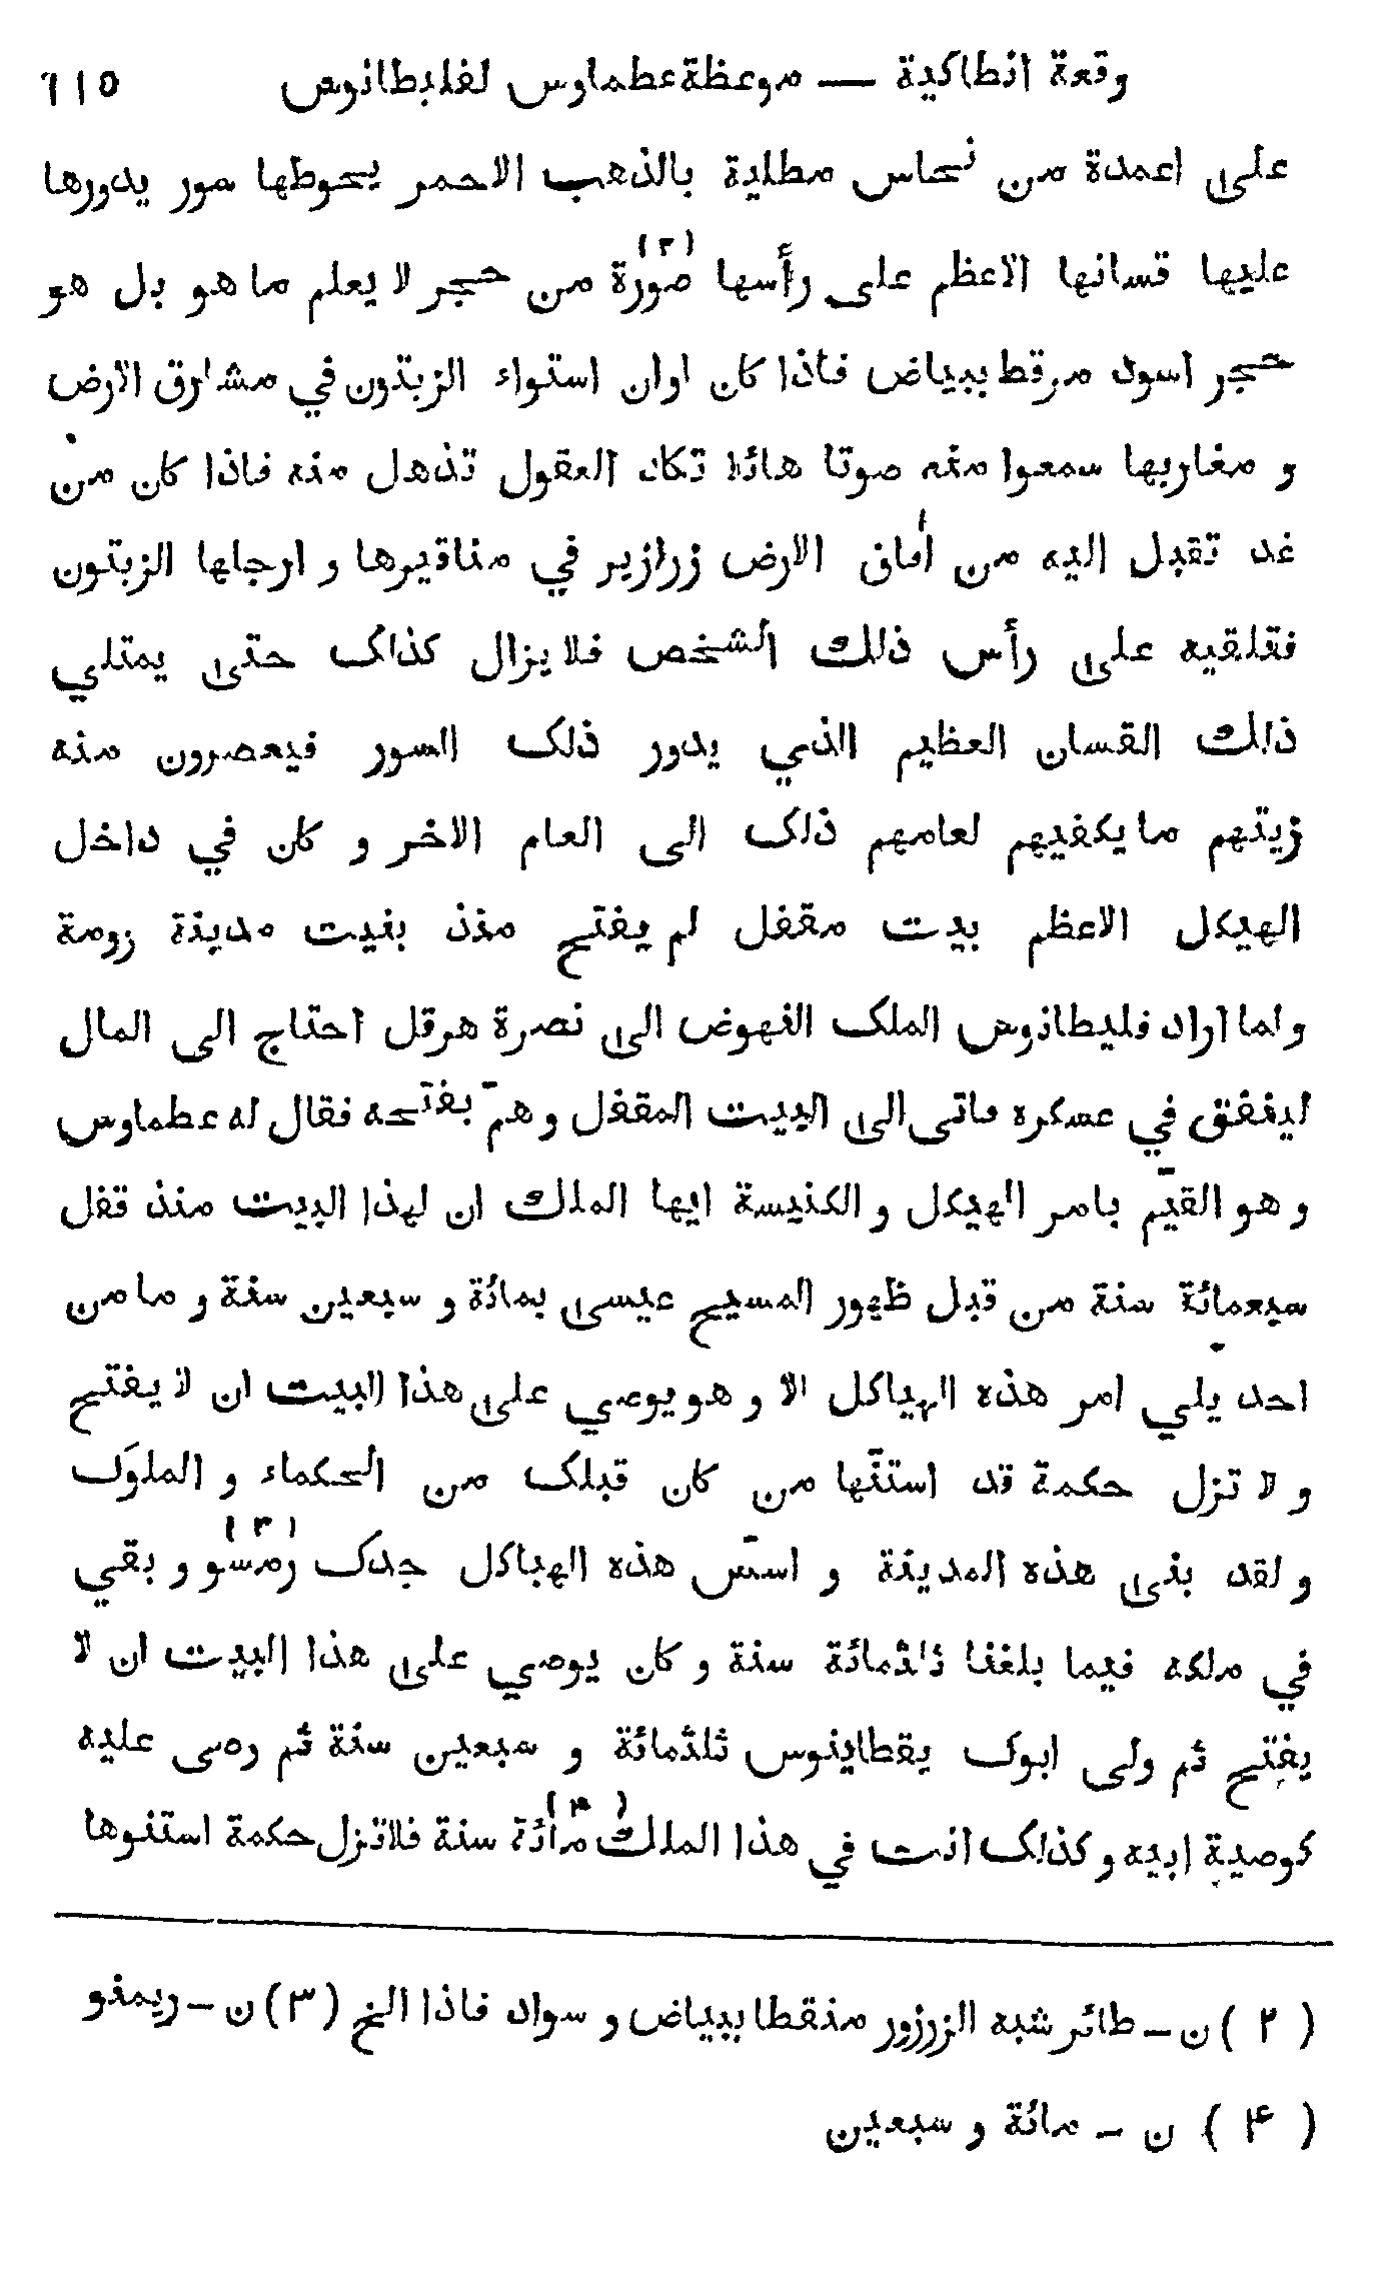 وقعة انطاكية — موعظة عطماوس لفليطانوس ١١٥
على اعمدة من نحاس مطلية بالذهب الاحمر يحوطها سور يدورها
عليها قسانها الاعظم على رأسها صورة (٢) من حجر لا يعلم ما هو بل هو
حجر اسود مرقط ببياض فاذا كان اوان استواء الزيتون في مشارق الارض
و مغاربها سمعوا منه صوتا هائلا تكاد العقول تذهل منه فاذا كان من
غد تقبل اليه من افاق الارض زرازير في مناقيرها و ارجلها الزيتون
فتلقيه على رأس ذلك الشخص فلا يزال كذلك حتى يمتلي
ذلك القسان العظيم الذي يدور ذلك السور فيعصرون منه
زيتهم ما يكفيهم لعامهم ذلك الى العام الاخر و كان في داخل
الهيكل الاعظم بيت مقفل لم يفتح منذ بنيت مدينة رومة
ولما اراد فليطانوس الملك النهوض الى نصرة هرقل احتاج الى المال
لينفق في عسكره فاتى الى البيت المقفل و همّ بفتحه فقال له عطماوس
و هو القيّم بامر الهيكل و الكنيسة ايها الملك ان لهذا البيت منذ قفل
سبعمائة سنة من قبل ظهور المسيح عيسى بمائة و سبعين سنة و ما من
احد يلي امر هذه الهياكل الا و هو يوصي على هذا البيت ان لا يفتح
و لا تزل حكمة قد استنّها من كان قبلك من الحكماء و الملوك
و لقد بنى هذه المدينة و اسّس هذه الهياكل جدك رمسو (٣) و بقي
في ملكه فيما بلغنا ثلثمائة سنة و كان يوصي على هذا البيت ان لا
يفتح ثم ولى ابوك يقطاينوس ثلثمائة و سبعين سنة ثم وصى عليه
كوصية ابيه و كذلك انت في هذا الملك (۴) مائة سنة فلا تزل حكمة استنوها
(٢) ن — طائر شبه الزرزور منقطا ببياض و سواد فاذا الخ (٣) ن — ريمنو
(۴) ن — مائة و سبعين